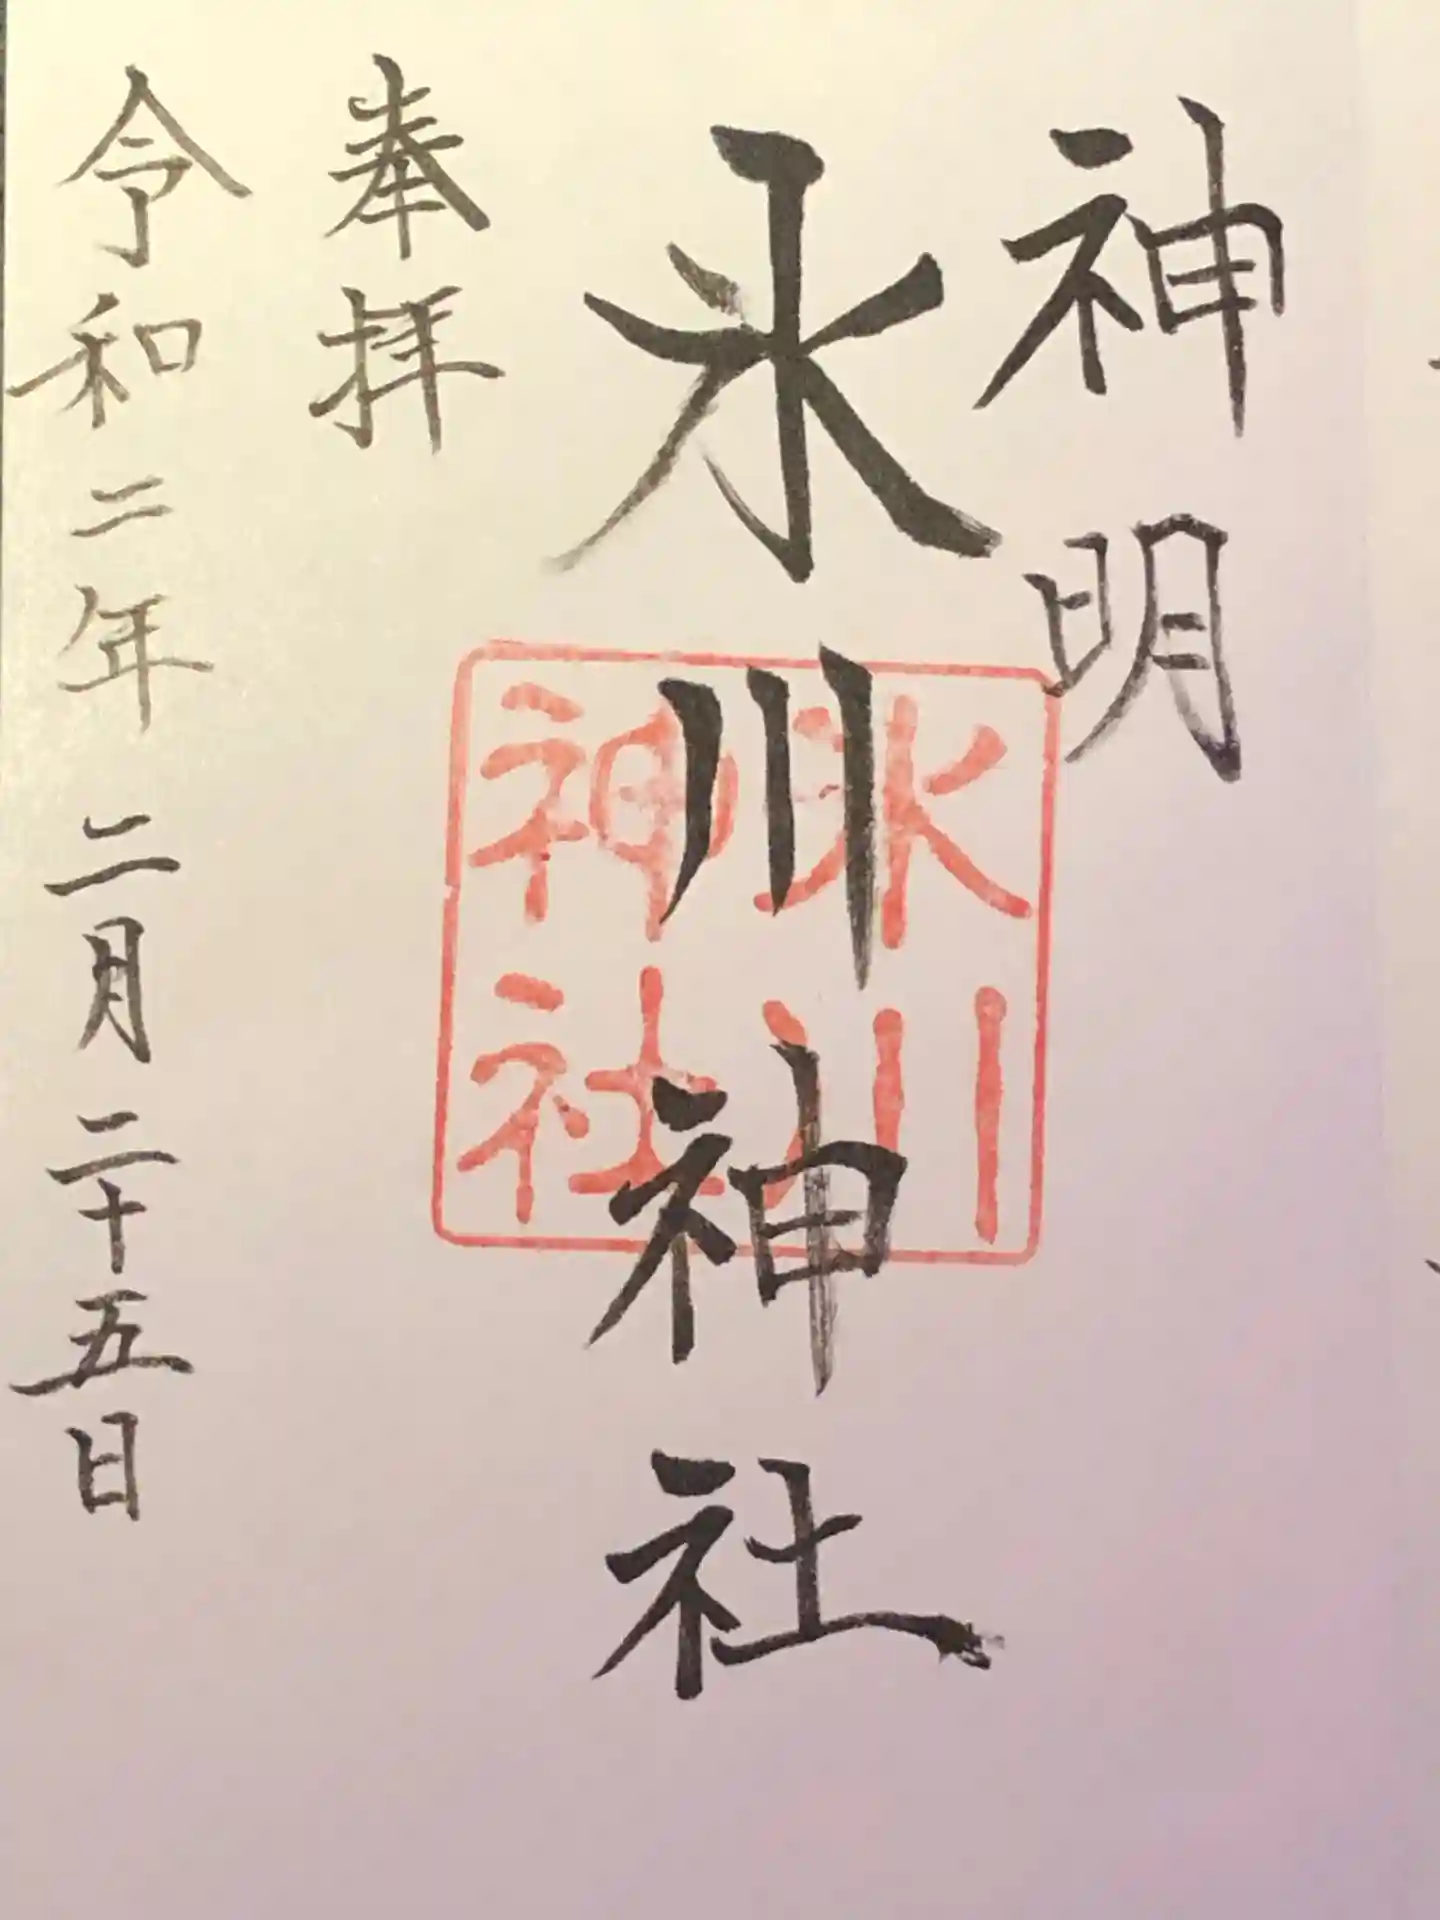 神明
氷川神社
氷川
神社
奉拝
令和二年二月二十五日